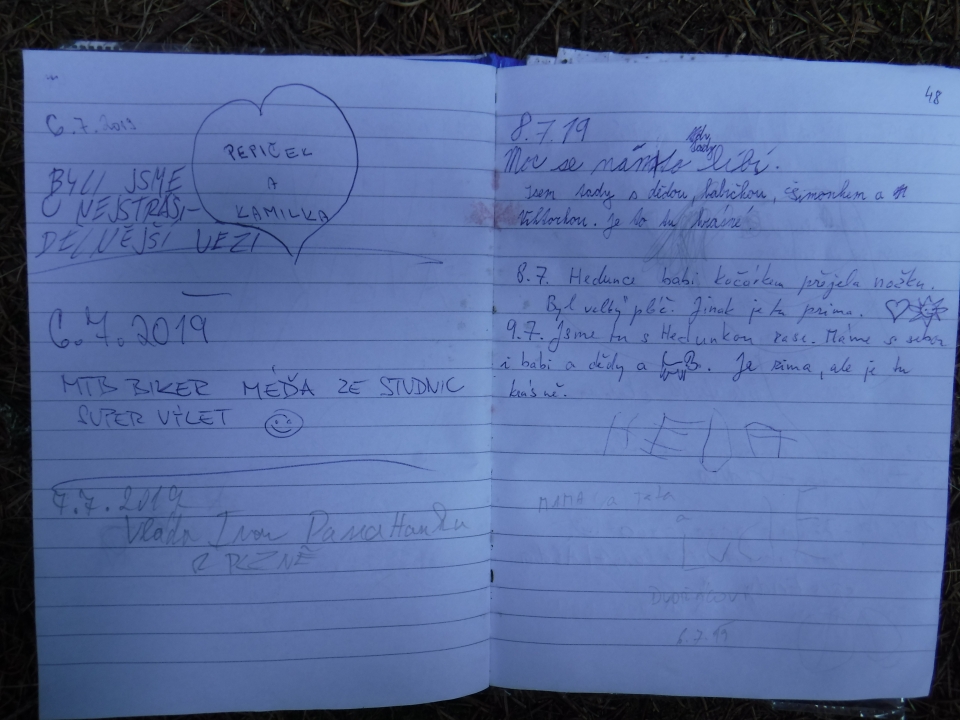 6.7.2019
PEPIČEK
A
KAMILKA
BYLI JSME
U NEJSTRAŠI-
DELNĚJŠÍ VEZI
6.7.2019
MTB BIKER MÉĎA ZE STUDNIC
SUPER VÝLET
7.7.2019
Vláďa Ivan
Z PLZNĚ
48
8.7.19
Moc se nám líbí.
Jsem tady s dědou, babičkou, Šimonkem a
Viktorkou. Je to tu krásné
8.7. Hedunce babi kočárkem přejela nožku.
Byl velký pláč. Jinak je tu prima.
9.7. Jsme tu s Hedunkou zase. Máme s sebou
i babi a dědy a . Je zima, ale je tu
krásně.
HEDA
MAMA a Táta
a
LUCIE